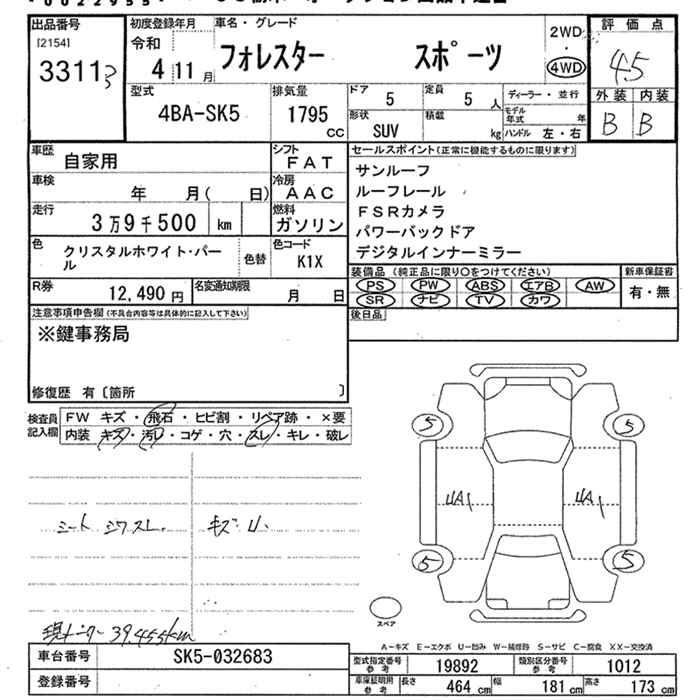 出品番号 初度登録年月 車名・グレード
[2154] 令和 フォレスター スポーツ 2WD・4WD 評価点
3311 4年11月 4.5
型式 排気量 ドア 5 定員 5人 ディーラー・並行 外装 内装
4BA-SK5 1795cc 形状 SUV 積載 kg モデル年式 年 B B
ハンドル 左・右
車歴 自家用 シフト FAT セールスポイント(正常に機能するものに限ります)
車検 年 月( 日) 冷房 AAC サンルーフ
走行 3万9千500km 燃料 ガソリン ルーフレール
FSRカメラ
パワーバックドア
色 クリスタルホワイト・パール 色替 色コード K1X デジタルインナーミラー
R券 12,490円 名変通知期限 月 日
装備品(純正品に限り○をつけてください) 新車保証書
PS PW ABS エアB AW 有・無
SR ナビ TV カワ
注意事項申告欄(不具合内容等は具体的に記入して下さい) 後日品
※鍵事務局
修復歴 有〔箇所 〕
検査員記入欄 FW キズ・飛石・ヒビ割・リペア跡・×要
内装 キズ・汚レ・コゲ・穴・スレ・キレ・破レ
5 5
A1 A1
シート シワスレ キズU
5 5
スペア
現メーター 39,455km
A-キズ E-エクボ U-凹み W-補修跡 S-サビ C-腐食 XX-交換済
車台番号 SK5-032683 型式指定番号 参考 19892 類別区分番号 参考 1012
登録番号 車庫証明用 参考 長さ 464cm 幅 181cm 高さ 173cm